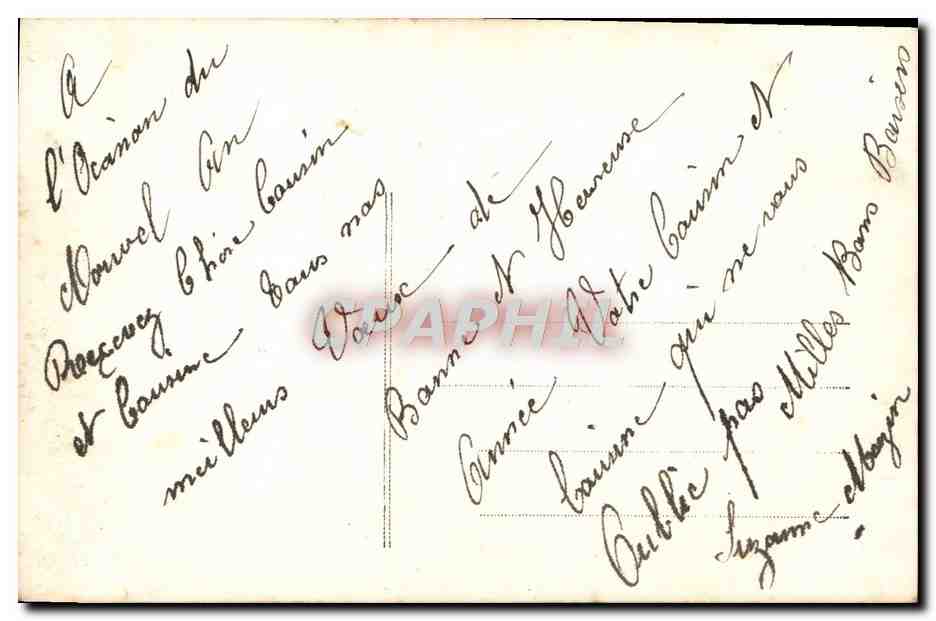 A
l'Ocanon du
Nouvel An
Recevez Chère Cousin
et Cousine Tous nos
meilleurs Vœux de
Bonne et Heureuse
Année Votre Cousin et
Cousine qui ne vous
Oublie pas Milles Bons Baisers
Suzanne Mazin
CPAPHIL